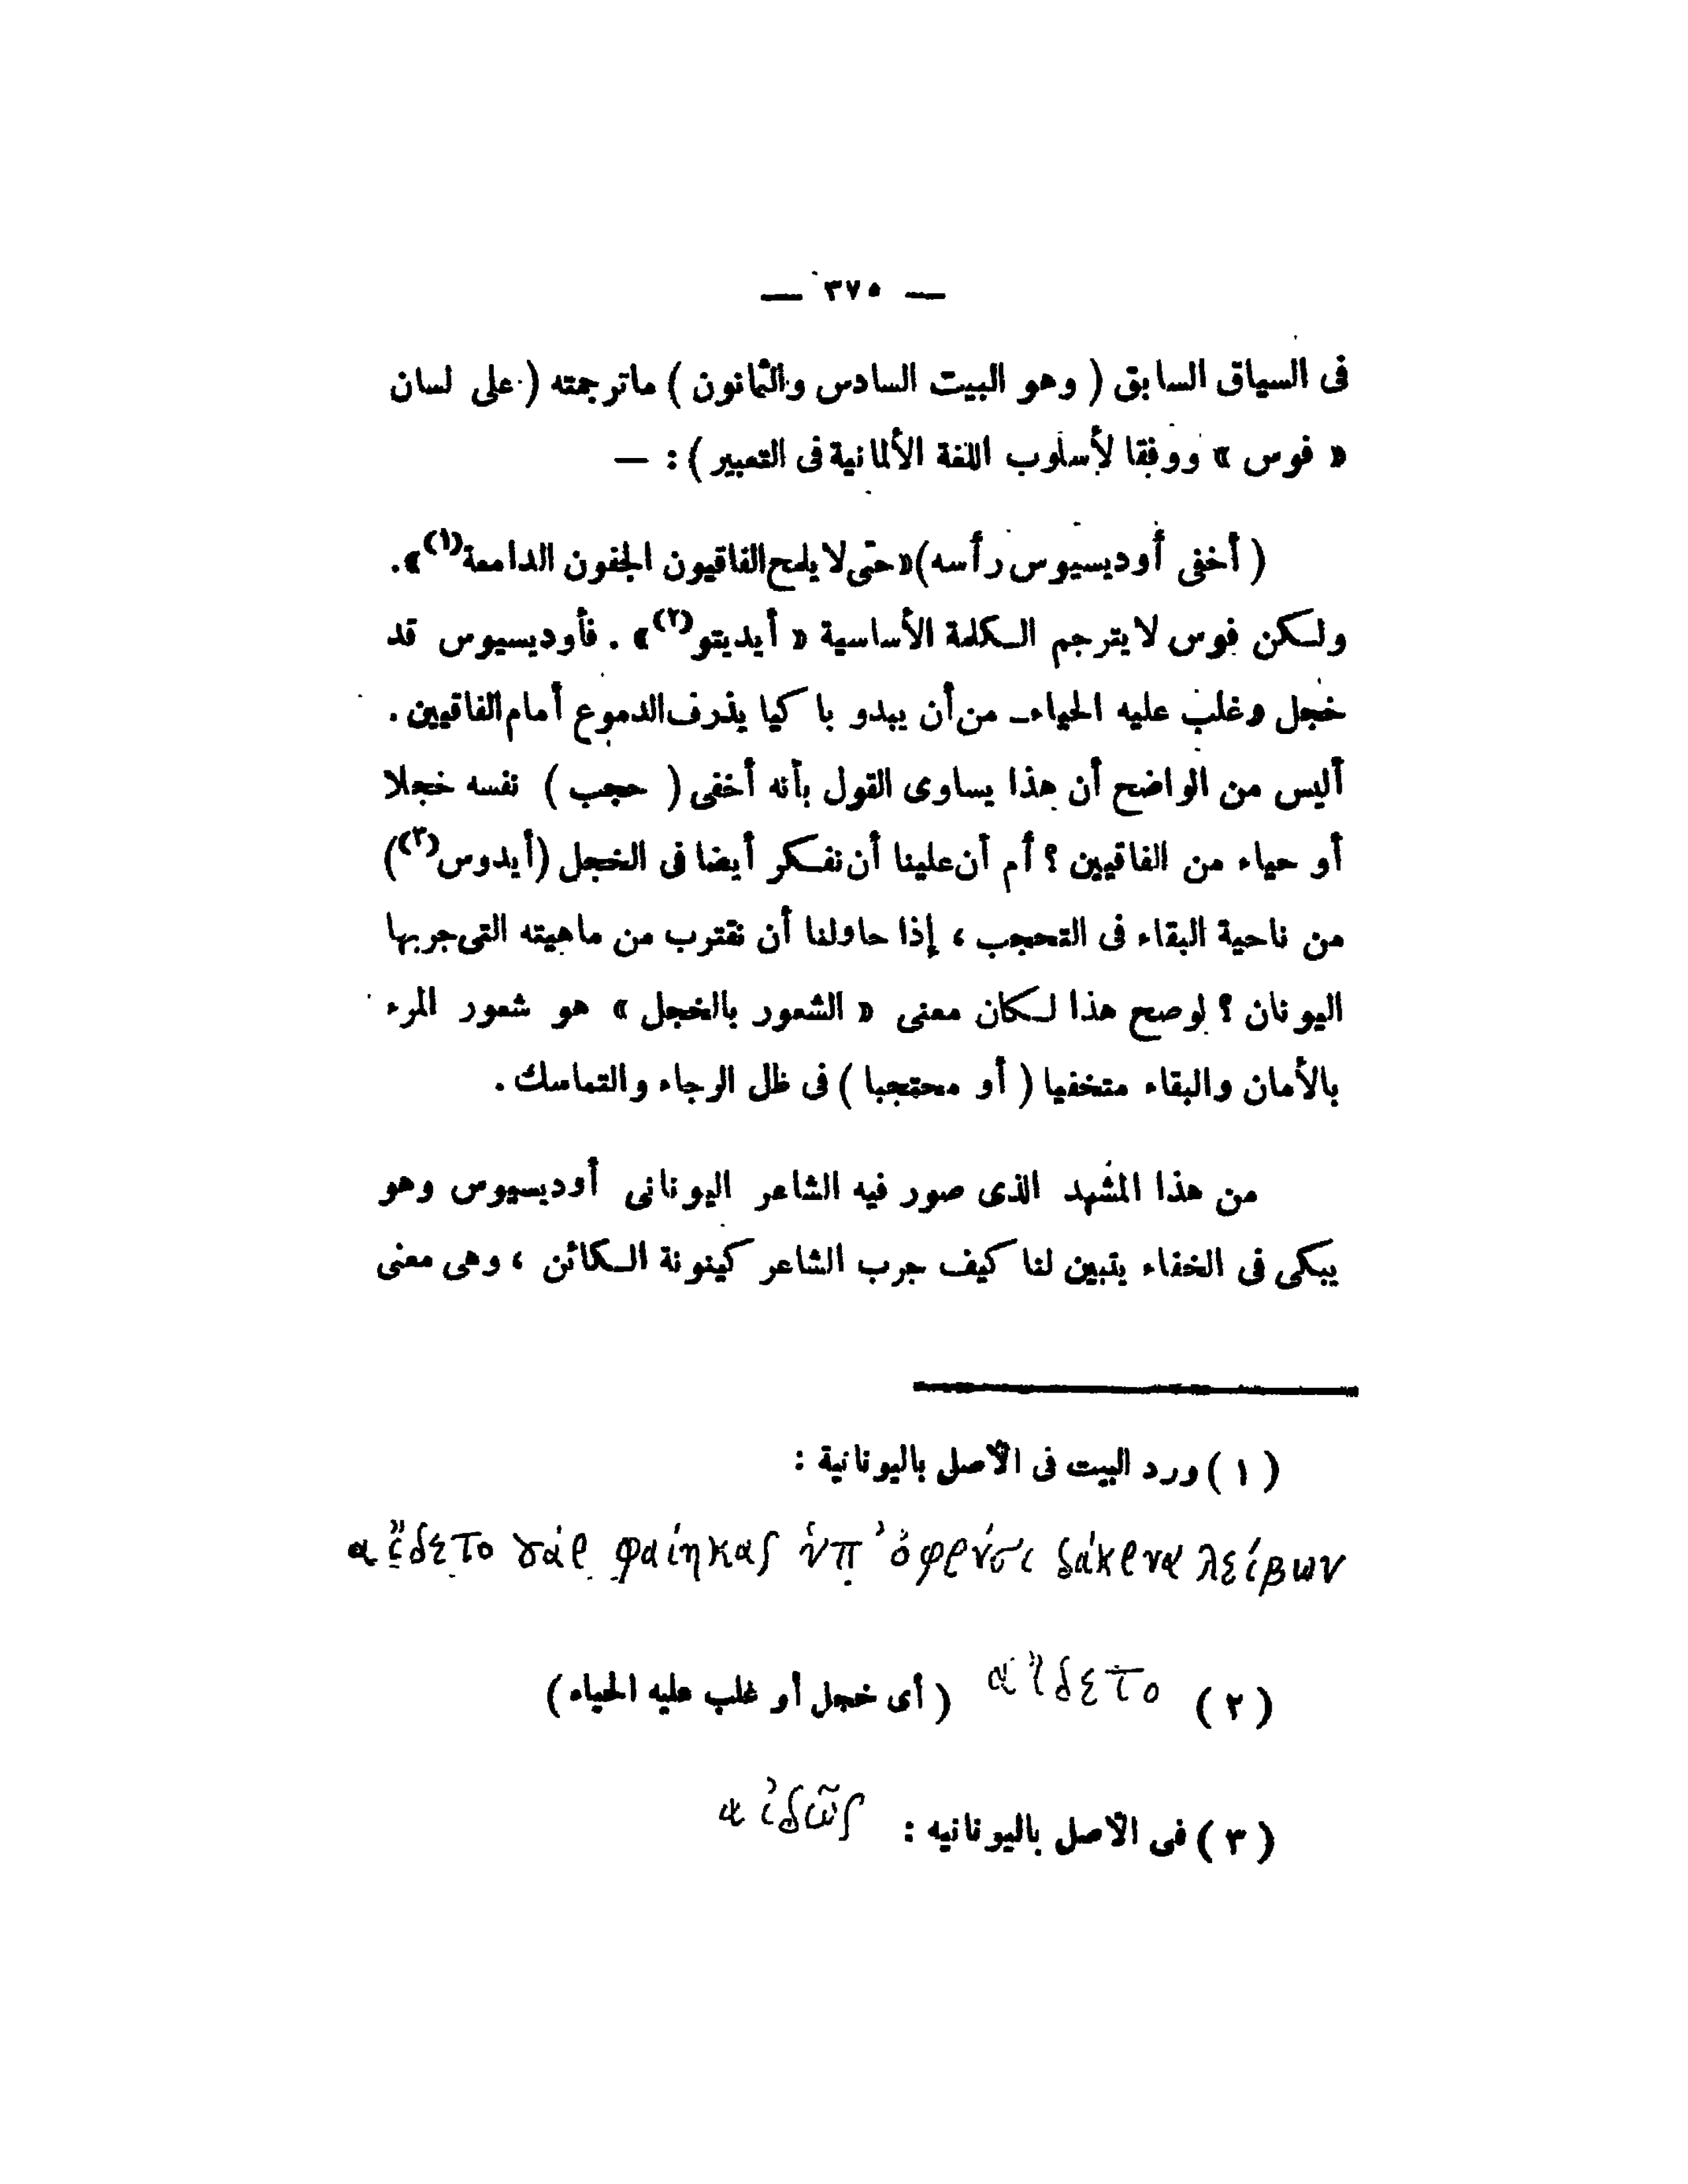 — ٣٧٥ —
فى السياق السابق ( وهو البيت السادس والثمانون ) ماترجمته ( على لسان
« فوس » ووفقا لأسلوب اللغة الألمانية فى التعبير ) : —
( أخفى أوديسيوس رأسه ) « حتى لا يلمح الفاقيون الجفون الدامعة(١) » .
ولكن فوس لا يترجم الكلمة الأساسية « أيديتو(٢) » . فأوديسيوس قد
خجل وغلب عليه الحياء ـ من أن يبدو باكيا يذرف الدموع أمام الفاقيين .
أليس من الواضح أن هذا يساوى القول بأنه أخفى ( حجب ) نفسه خجلا
أو حياء من الفاقيين ؟ أم أن علينا أن نفكر أيضا فى الخجل (أيدوس(٣))
من ناحية البقاء فى التحجب ، إذا حاولنا أن نقترب من ماهيته التى جربها
اليونان ؟ لوصح هذا لكان معنى « الشعور بالخجل » هو شعور المرء
بالأمان والبقاء متخفيا ( أو محتجبا ) فى ظل الرجاء والتماسك .
من هذا المشهد الذى صور فيه الشاعر اليونانى أوديسيوس وهو
يبكى فى الخفاء يتبين لنا كيف جرب الشاعر كينونة الكائن ، وهى معنى
( ١ ) ورد البيت فى الأصل باليونانية :
αἴδετο γάρ φαίηκας ὑπ᾽ ὀφρύσι δάκρυα λείβων
( ٢ ) αἴδετο ( أى خجل أو غلب عليه الحياء )
( ٣ ) فى الأصل باليونانيه : αἰδῶς